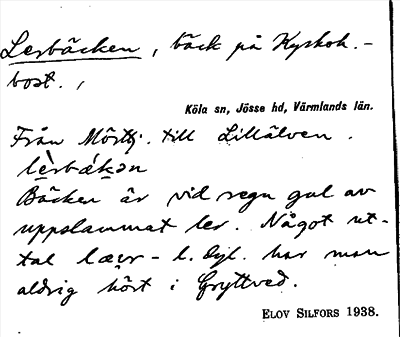 Lerbäcken, bäck på Kyrkoh.-
bost.,
Köla sn, Jösse hd, Värmlands län.
Från Mörttj. till Lillälven.
lè̱rbák̯ən
Bäcken är vid regn gul av
uppslammat ler. Något ut-
tal læer- l. dyl. har man
aldrig hört i Gryttved.
ELOV SILFORS 1938.